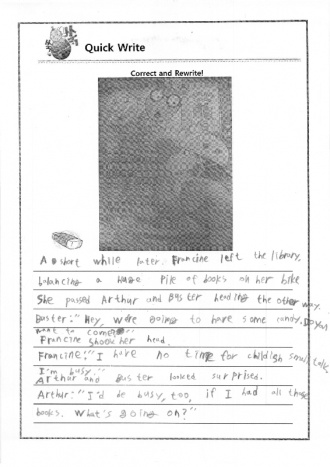 Quick Write
Correct and Rewrite!
A short while later. Francine left the library,
balancing a huge pile of books on her bike
She passed Arthur and Buster heading the other way.
Buster:"Hey, We're going to have some candy. Do you
want to come?"
Francine shook her head.
Francine:"I have no time for childish small talk.
I'm busy."
Arthur and Buster looked surprised.
Arthur:"I'd be busy, too, if I had all those
books. What's going on?"